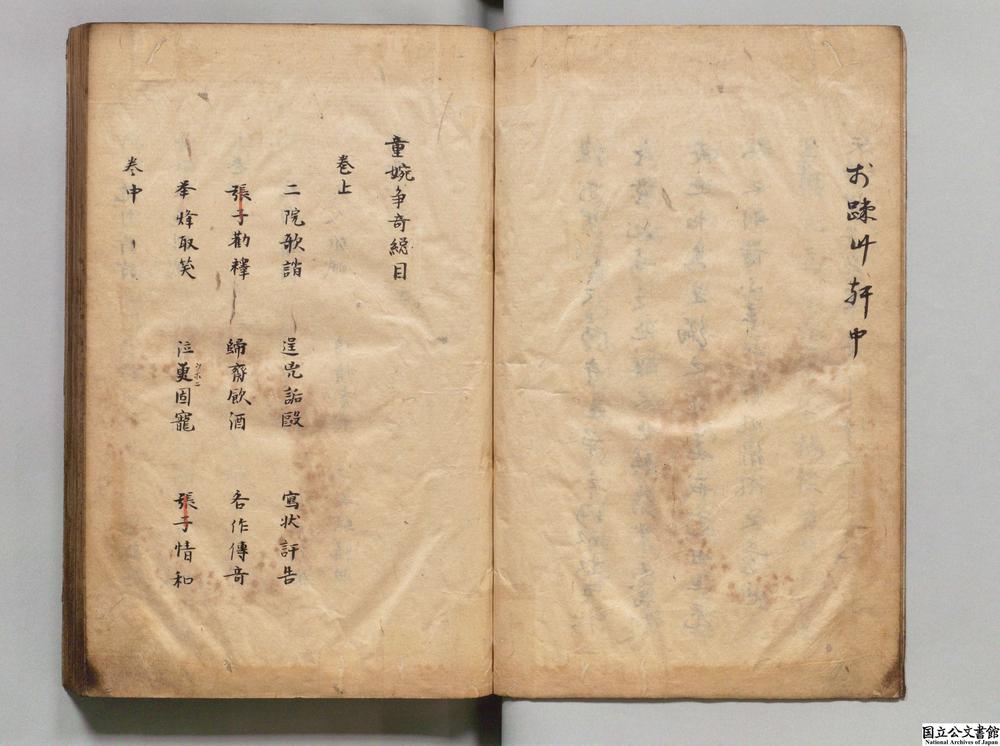 於疎竹軒中
童婉争奇総目
卷上
二院歌誚 逞兇詬毆 寫状訐告
張子勸釋 歸齋飲酒 各作傳奇
举烽取笑 泣更固寵 張子情和
卷中
国立公文書館
National Archives of Japan